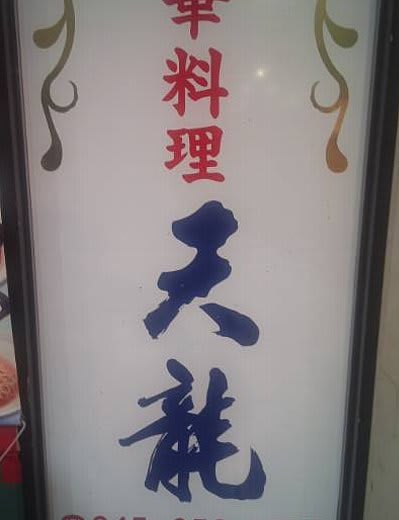 華料理
天龍